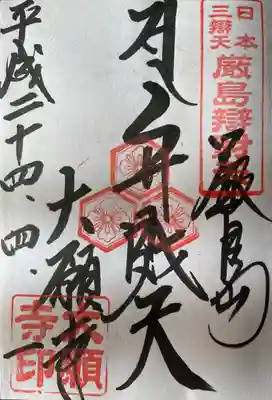 日本
三辯天
厳島辯財天
厳島山
弁財天
大願寺
平成二十四.四.一
大願
寺印